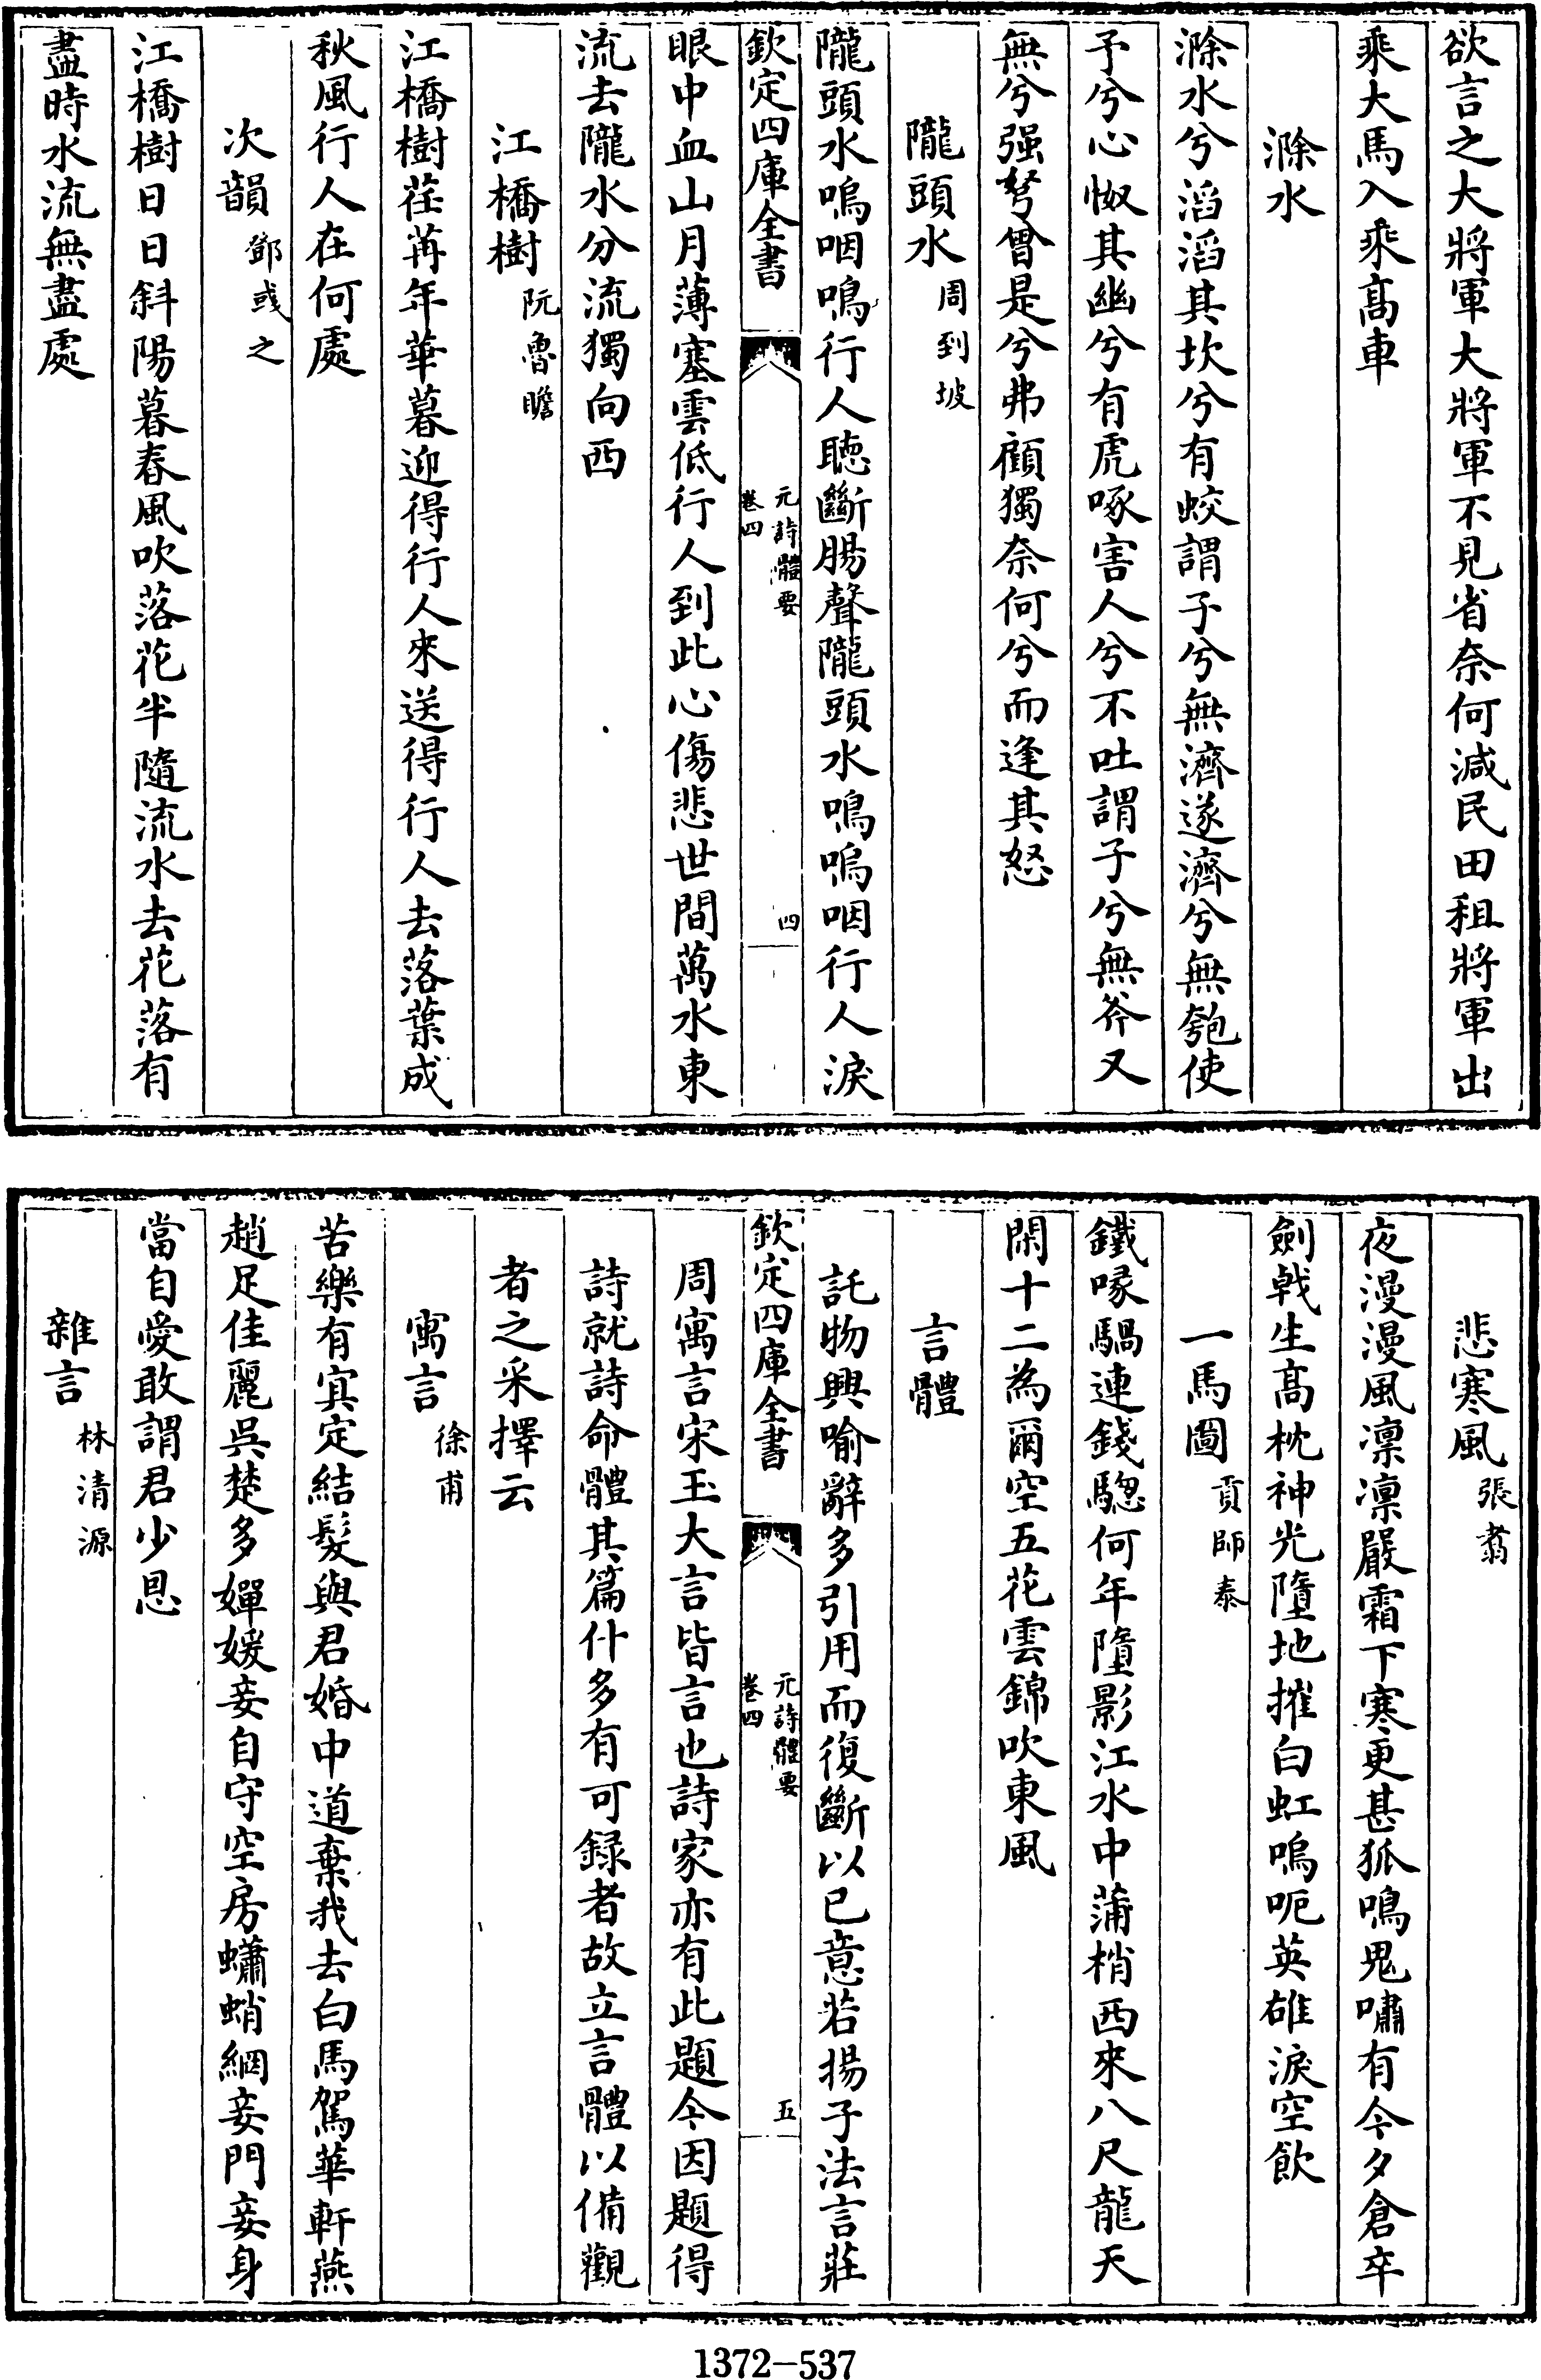 欲言之大將軍大將軍不見省奈何減民田租將軍出
乘大馬入乘髙車
滁水
滁水兮滔滔其坎兮有蛟謂子兮無濟遂濟兮無匏使
予兮心怓其幽兮有虎啄害人兮不吐謂子兮無斧又
無兮强弩曾是兮弗顧獨奈何兮而逢其怒
隴頭水周到坡
隴頭水嗚咽鳴行人聴斷腸聲隴頭水鳴嗚咽行人淚
欽定四庫全書
元詩體要
卷四
四
眼中血山月薄塞雲低行人到此心傷悲世間萬水東
流去隴水分流獨向西
江橋樹阮魯瞻
江橋樹荏苒年華暮迎得行人來送得行人去落葉成
秋風行人在何處
次韻鄧彧之
江橋樹日日斜陽暮春風吹落花半隨流水去花落有
盡時水流無盡處
悲寒風張翥
夜漫漫風凛凛嚴霜下寒更甚狐鳴鬼嘯有今夕倉卒
劍戟生髙枕神光墮地摧白虹嗚呃英雄淚空飲
一馬圖貢師泰
鐵喙騧連錢驄何年墮影江水中蒲梢西來八尺龍天
閑十二為爾空五花雲錦吹東風
言體
託物興喻辭多引用而復斷以已意若揚子法言莊
欽定四庫全書
元詩體要
卷四
五
周寓言宋玉大言皆言也詩家亦有此題今因題得
詩就詩命體其篇什多有可録者故立言體以備觀
者之采擇云
寓言徐甫
苦樂有寘定結髮與君婚中道棄我去白馬駕華軒燕
趙足佳麗吳楚多嬋媛妾自守空房蠨蛸網妾門妾身
當自愛敢謂君少恩
雜言林清源
1372-537